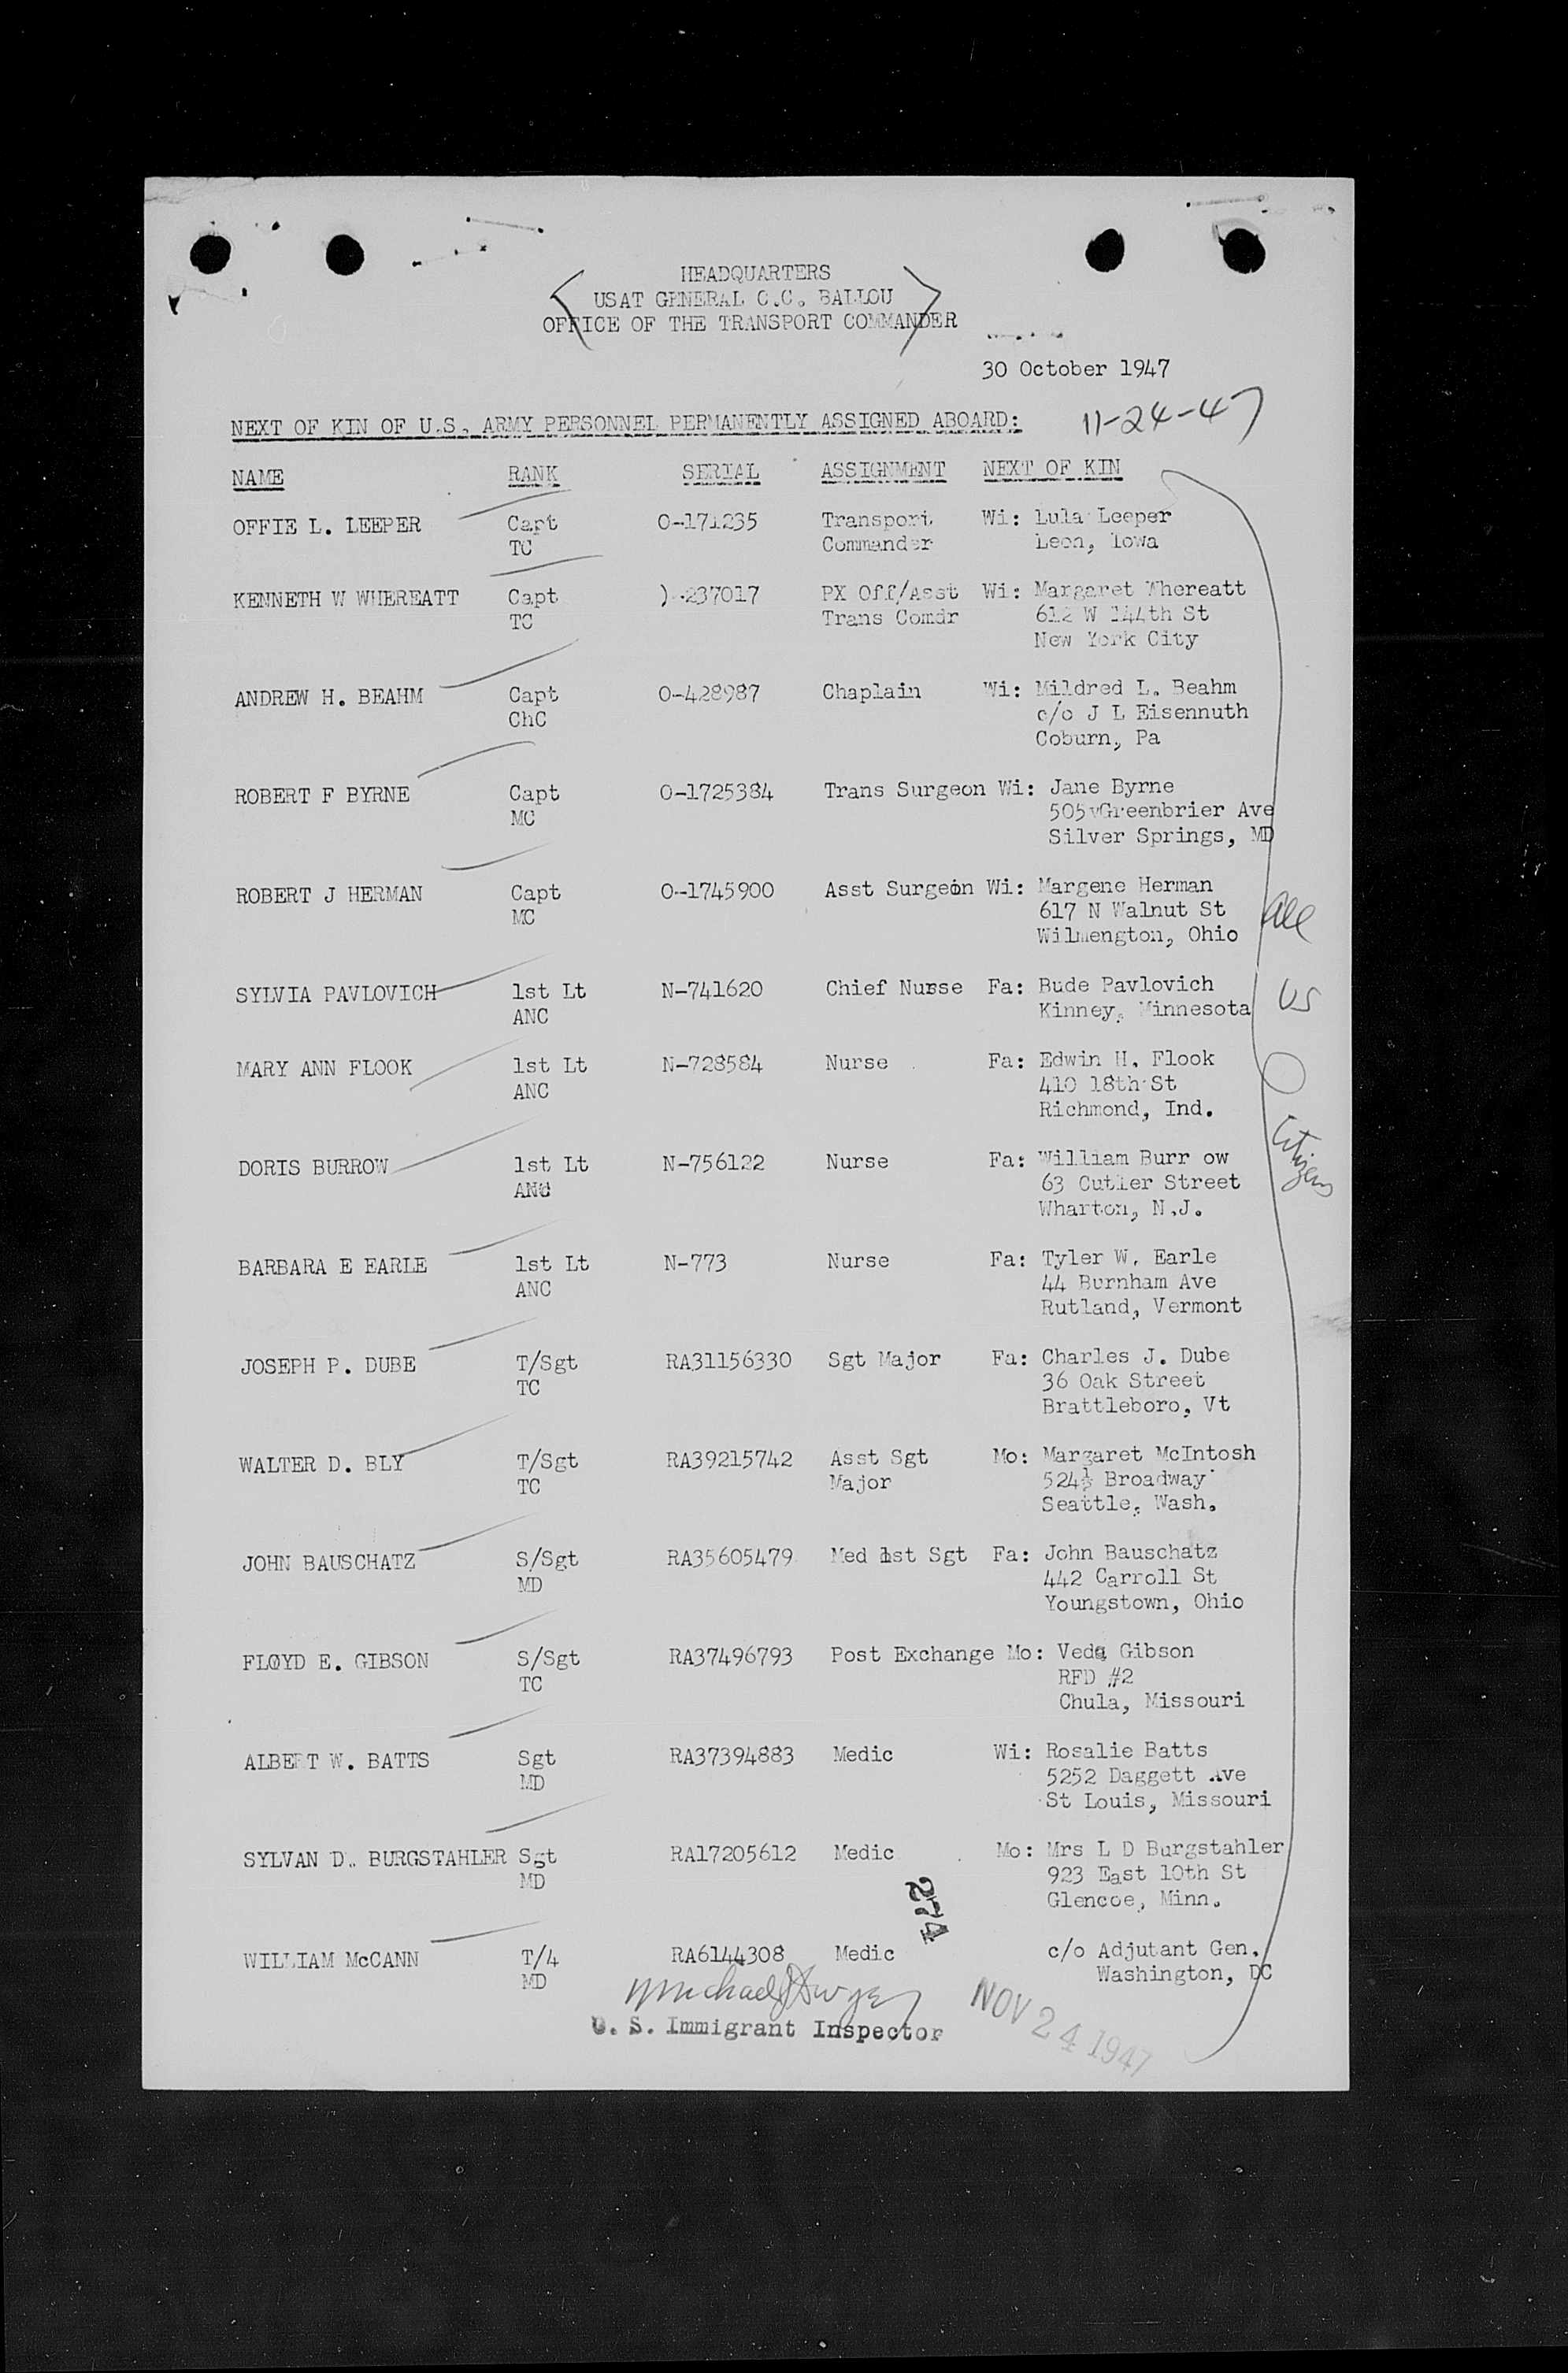 HEADQUARTERS
USAT GENERAL C.C. BALLOU
OFFICE OF THE TRANSPORT COMMANDER
30 October 1947
11-24-47
NEXT OF KIN OF U.S. ARMY PERSONNEL PERMANENTLY ASSIGNED ABOARD:
NAME RANK SERIAL ASSIGNMENT NEXT OF KIN
OFFIE L. LEEPER Capt O-171235 Transport Wi: Lula Leeper
TC Commander Leon, Iowa
KENNETH W WHEREATT Capt )-237017 PX Off/Asst Wi: Margaret Whereatt
TC Trans Comdr 612 W 144th St
New York City
ANDREW H. BEAHM Capt O-428987 Chaplain Wi: Mildred L. Beahm
ChC c/o J L Eisennuth
Coburn, Pa
ROBERT F BYRNE Capt O-1725384 Trans Surgeon Wi: Jane Byrne
MC 505 Greenbrier Ave
Silver Springs, MD
ROBERT J HERMAN Capt O-1745900 Asst Surgeon Wi: Margene Herman
MC 617 N Walnut St
Wilmengton, Ohio
all
SYLVIA PAVLOVICH 1st Lt N-741620 Chief Nurse Fa: Bude Pavlovich
ANC Kinney, Minnesota
US
MARY ANN FLOOK 1st Lt N-728584 Nurse Fa: Edwin H. Flook
ANC 410 18th St
Richmond, Ind.
Citizens
DORIS BURROW 1st Lt N-756122 Nurse Fa: William Burr ow
ANC 63 Cutler Street
Wharton, N.J.
BARBARA E EARLE 1st Lt N-773 Nurse Fa: Tyler W. Earle
ANC 44 Burnham Ave
Rutland, Vermont
JOSEPH P. DUBE T/Sgt RA31156330 Sgt Major Fa: Charles J. Dube
TC 36 Oak Street
Brattleboro, Vt
WALTER D. BLY T/Sgt RA39215742 Asst Sgt Mo: Margaret McIntosh
TC Major 524½ Broadway
Seattle, Wash.
JOHN BAUSCHATZ S/Sgt RA35605479 Med 1st Sgt Fa: John Bauschatz
MD 442 Carroll St
Youngstown, Ohio
FLOYD E. GIBSON S/Sgt RA37496793 Post Exchange Mo: Veda Gibson
TC RFD #2
Chula, Missouri
ALBERT W. BATTS Sgt RA37394883 Medic Wi: Rosalie Batts
MD 5252 Daggett Ave
St Louis, Missouri
SYLVAN D. BURGSTAHLER Sgt RA17205612 Medic Mo: Mrs L D Burgstahler
MD 923 East 10th St
Glencoe, Minn.
274
WILLIAM McCANN T/4 RA6144308 Medic c/o Adjutant Gen.
MD Washington, DC
Michael J Dwyer
U. S. Immigrant Inspector
NOV 24 1947